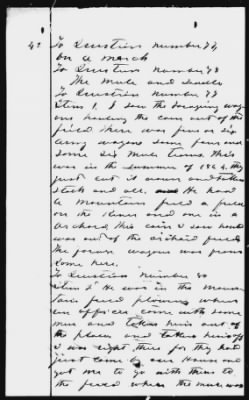 To Question Number 74
on a march
To Question Number 75
The mule and saddle
To Question Number 77
Item 1. I saw the foraging wag
ons hauling the corn out of the
field there was five or six
army wagons some four and
some six mule teams. This
was in the summer of 1864, they
just cut it down and take
stalk and all. He had
a mountain field a field
on the River and one in a
orchard, this corn I saw hauled
was out of the orchard field
the forage wagons was from
Rome here.
To Question Number 80
Item 2" He was in the moun
tain field plowing when
an officer come with some
men and taken him out of
the place and taken him off
I was right there for they had
just come by our House and
got me to go with them to
the field where the mule was